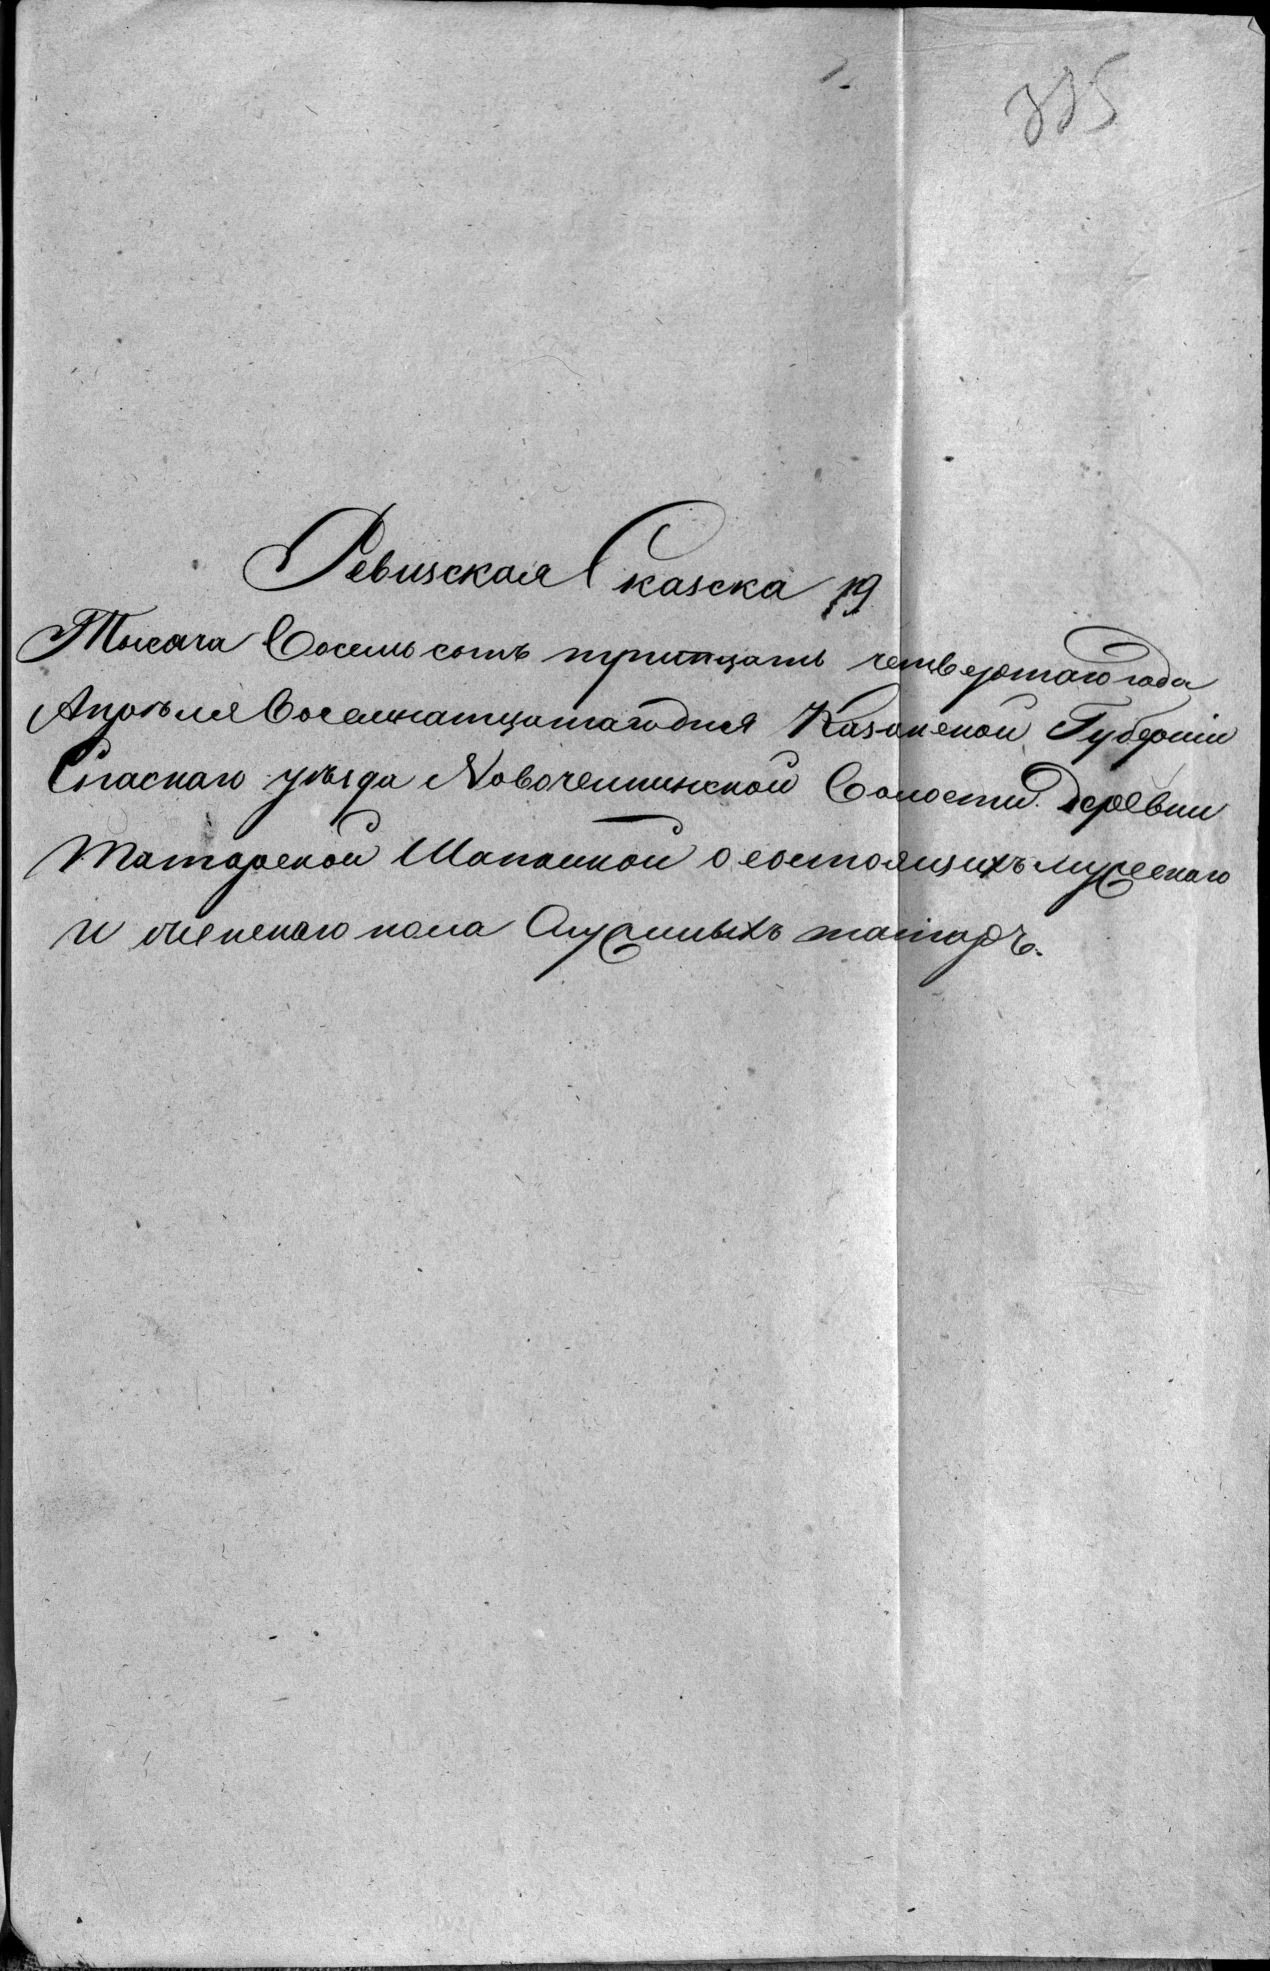 335
Ревизская Сказска 19
Тысеча Восемь сотъ тритцать четвертаго года
Апрѣля Восемнатцатаго дня Казанской Губерніи
Спаскаго уѣзда Новочелнинской Волости Деревни
Татарской Шапкиной о состоящихъ мужескаго
и женскаго пола Служивыхъ татаръ.